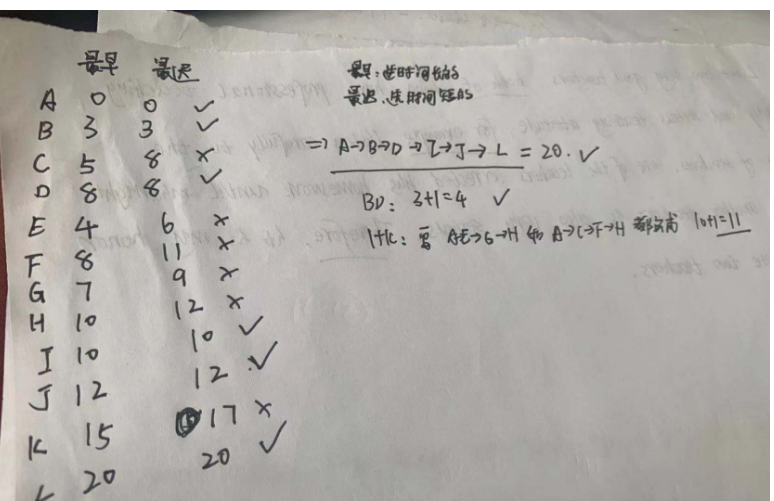 最早 最迟
A 0 0 ✓
B 3 3 ✓
C 5 8 ×
D 8 8 ✓
E 4 6 ×
F 8 11 ×
G 7 9 ×
H 10 12 ×
I 10 10 ✓
J 12 12 ✓
K 15 17 ×
L 20 20 ✓
最早:选时间长的
最迟:选时间短的
⇒ A→B→D→I→J→L = 20. ✓
BD: 3+1=4 ✓
HK: 要 AE→G→H 和 A→C→F→H 都完成 10+1=11